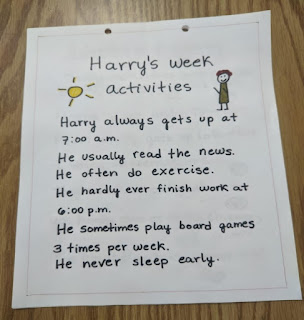 Harry's week
activities
Harry always gets up at
7:00 a.m.
He usually read the news.
He often do exercise.
He hardly ever finish work at
6:00 p.m.
He sometimes play board games
3 times per week.
He never sleep early.